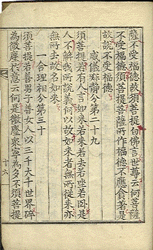 薩不受福德須菩提白佛言世尊云何菩薩
不受福德須菩提菩薩所作福德不應貪著是
故說不受福德
威儀寂靜分第二十九
須菩提若有人言如來若來若去若坐若臥是
人不解我所說義何以故如來者無所從來亦
無所去故名如來
一合理相分第三十
須菩提若善男子善女人以三千大千世界碎
為微塵於意云何是微塵眾寧為多不須菩提